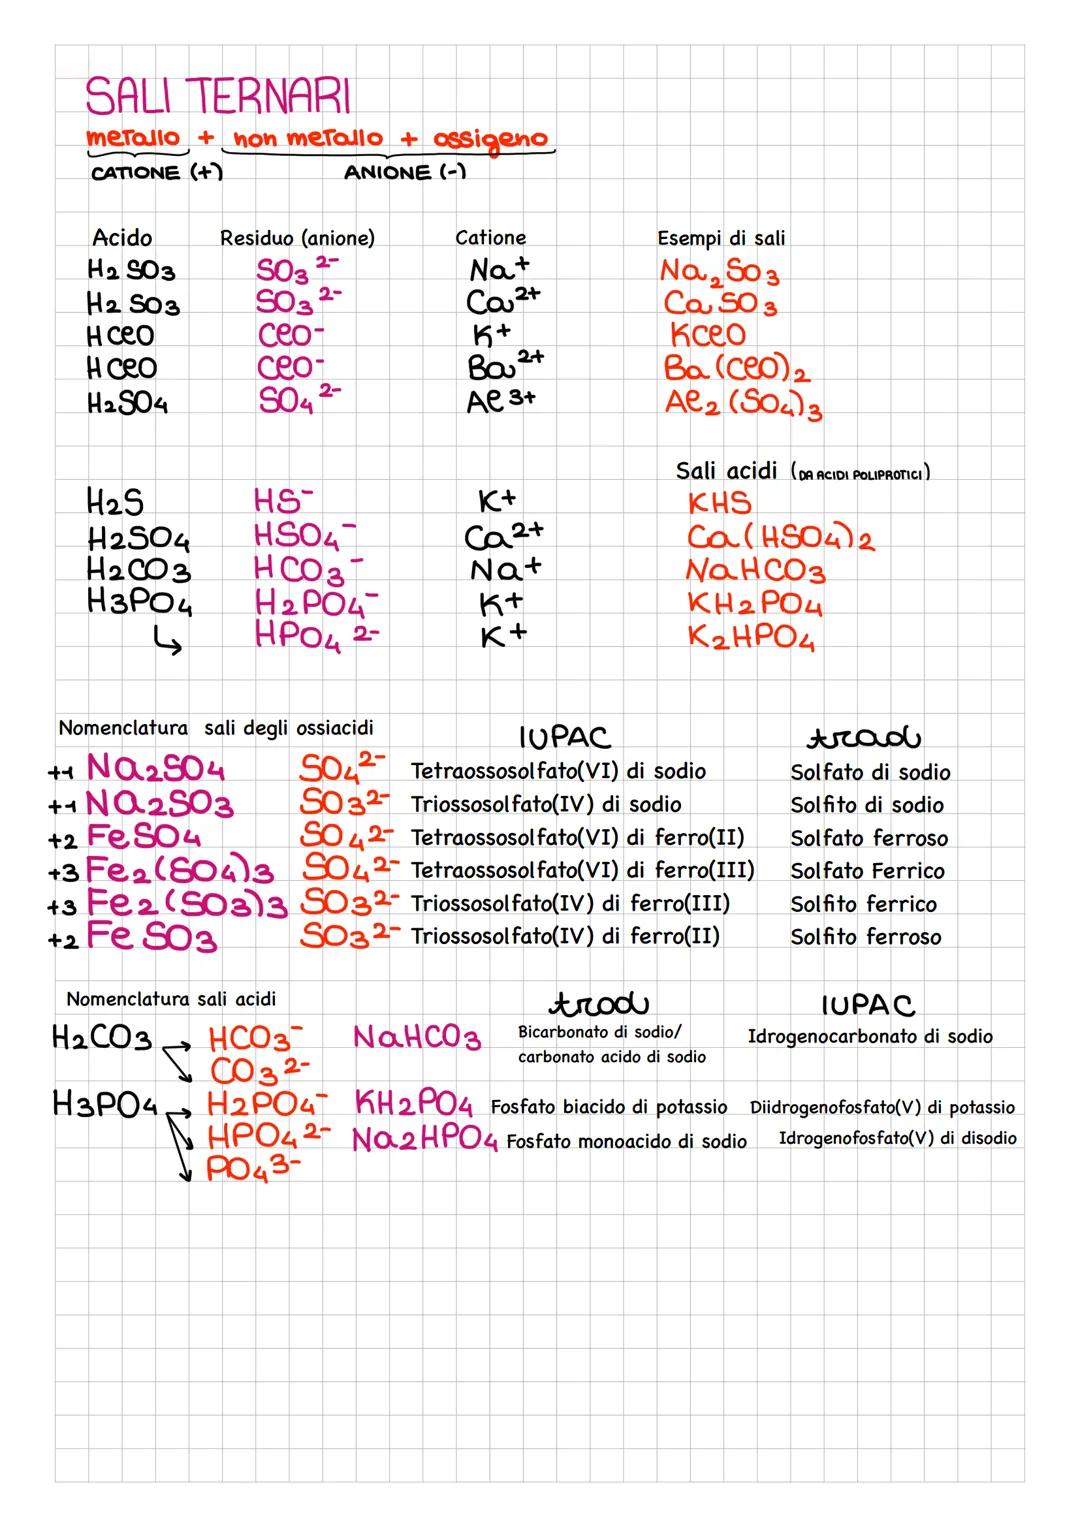 SALI TERNARI
metallo + non metallo + ossigeno
CATIONE (+) ANIONE (-)
Acido Residuo (anione) Catione Esempi di sali
H2 SO3 SO3 2- Na+ Na2 SO3
H2 SO3 SO3 2- Ca2+ Ca SO3
HClO ClO- K+ KClO
HClO ClO- Ba2+ Ba(ClO)2
H2SO4 SO4 2- Al3+ Al2(SO4)3
Sali acidi (DA ACIDI POLIPROTICI)
H2S HS- K+ KHS
H2SO4 HSO4- Ca2+ Ca(HSO4)2
H2CO3 HCO3- Na+ NaHCO3
H3PO4 H2PO4- K+ KH2PO4
↳ HPO4 2- K+ K2HPO4
Nomenclatura sali degli ossiacidi IUPAC trad
+1 Na2SO4 SO4 2- Tetraossosolfato(VI) di sodio Solfato di sodio
+1 Na2SO3 SO3 2- Triossosolfato(IV) di sodio Solfito di sodio
+2 FeSO4 SO4 2- Tetraossosolfato(VI) di ferro(II) Solfato ferroso
+3 Fe2(SO4)3 SO4 2- Tetraossosolfato(VI) di ferro(III) Solfato Ferrico
+3 Fe2(SO3)3 SO3 2- Triossosolfato(IV) di ferro(III) Solfito ferrico
+2 FeSO3 SO3 2- Triossosolfato(IV) di ferro(II) Solfito ferroso
Nomenclatura sali acidi trad IUPAC
H2CO3 → HCO3- NaHCO3 Bicarbonato di sodio/ Idrogenocarbonato di sodio
CO3 2- carbonato acido di sodio
H3PO4 → H2PO4- KH2PO4 Fosfato biacido di potassio Diidrogenofosfato(V) di potassio
HPO4 2- Na2HPO4 Fosfato monoacido di sodio Idrogenofosfato(V) di disodio
PO4 3-